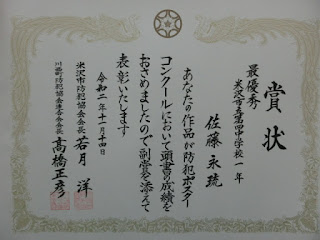 賞状
最優秀
米沢市立第四中学校 一年
佐藤 永琉
あなたの作品が防犯ポスター
コンクールにおいて頭書の成績を
おさめましたので副賞を添えて
表彰いたします
令和二年十一月十四日
米沢市防犯協会会長 若月 洋
川西町防犯協会連合会会長 高橋正彦